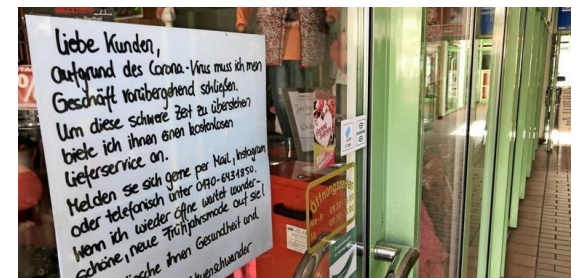 Liebe Kunden,
aufgrund des Corona-Virus muss ich mein
Geschäft vorübergehend schließen.
Um diese schwere Zeit zu überstehen
biete ich ihnen einen kostenlosen
Lieferservice an.
Melden sie sich gerne per Mail, Instagram
oder telefonisch unter 0170-6434850.
Wenn ich wieder öffne wartet wunder-
schöne, neue Frühjahrsmode auf sie!
ihnen Gesundheit und
Öffnungszeiten